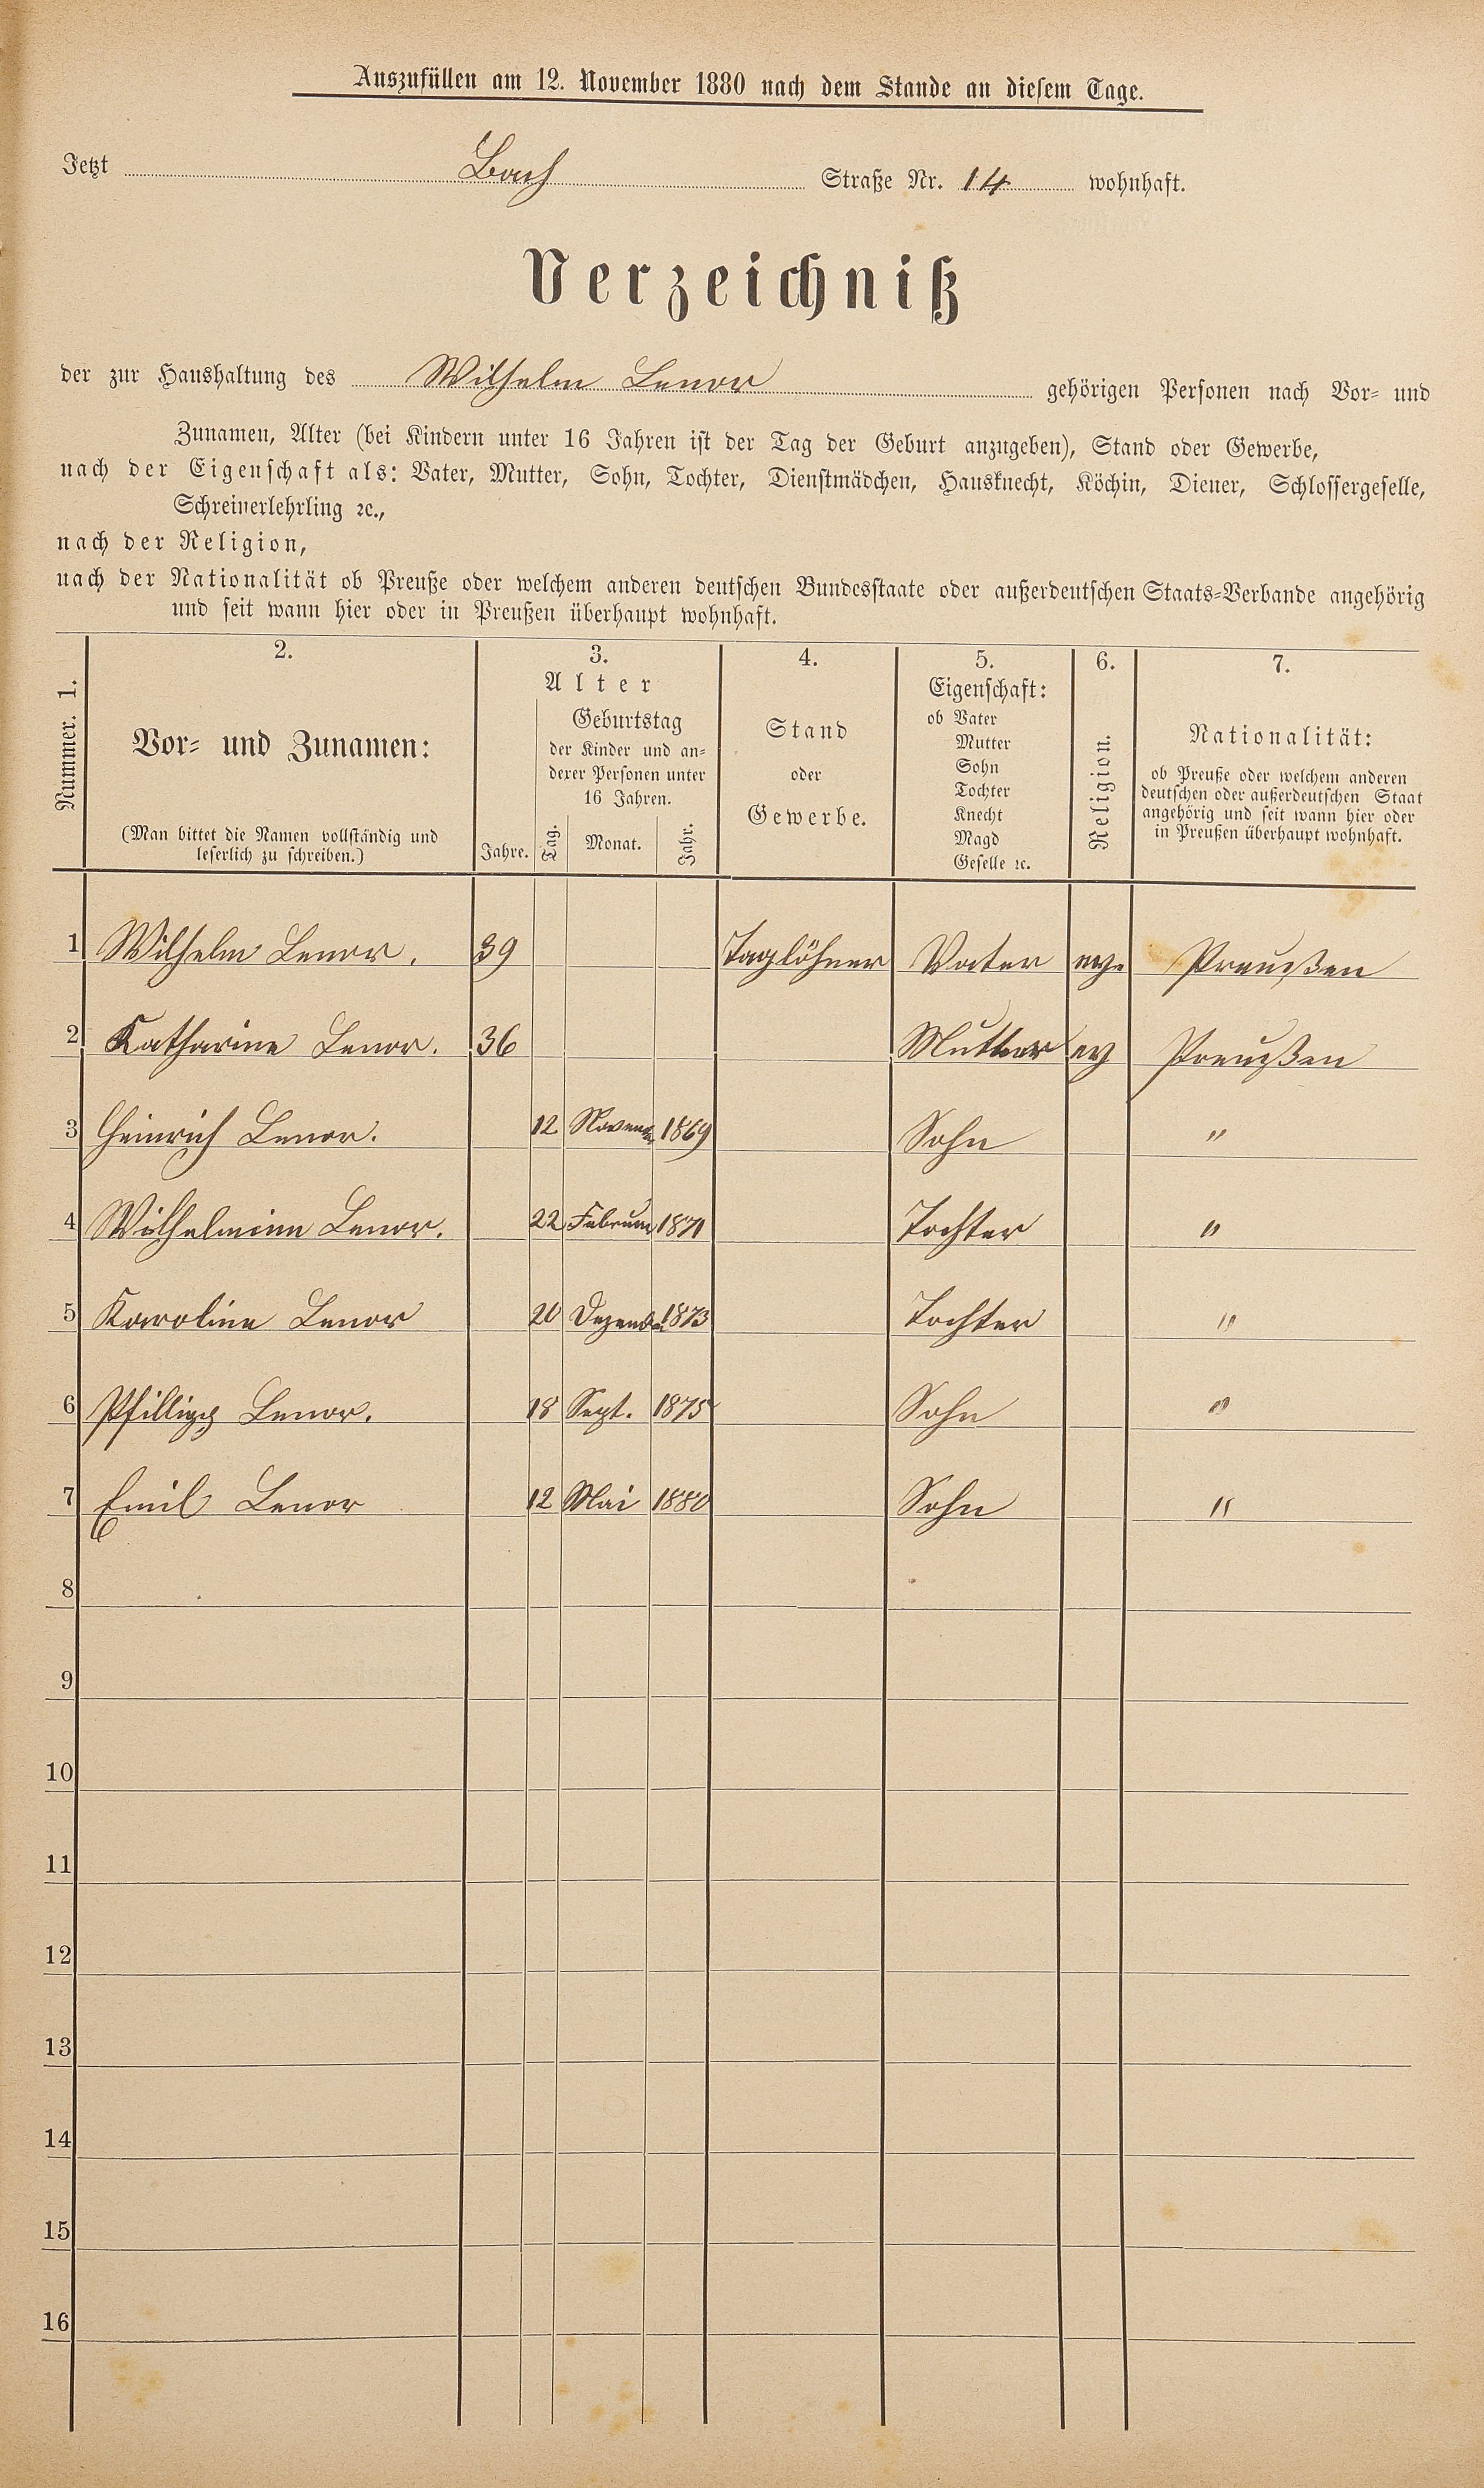 Auszufüllen am 12. November 1880 nach dem Stande an diesem Tage.
Jetzt Bach Straße Nr. 14 wohnhaft.
Verzeichniß
der zur Haushaltung des Wilhelm Lenor gehörigen Personen nach Vor- und
Zunamen, Alter (bei Kindern unter 16 Jahren ist der Tag der Geburt anzugeben), Stand oder Gewerbe,
nach der Eigenschaft als: Vater, Mutter, Sohn, Tochter, Dienstmädchen, Hausknecht, Köchin, Diener, Schlossergeselle,
Schreinerlehrling ꝛc.,
nach der Religion,
nach der Nationalität ob Preuße oder welchem anderen deutschen Bundesstaate oder außerdeutschen Staats-Verbande angehörig
und seit wann hier oder in Preußen überhaupt wohnhaft.
Nummer. 1.
2.
Vor- und Zunamen:
(Man bittet die Namen vollständig und
leserlich zu schreiben.)
3.
Alter
Jahre.
Geburtstag
der Kinder und an-
derer Personen unter
16 Jahren.
Tag. Monat. Jahr.
4.
Stand
oder
Gewerbe.
5.
Eigenschaft:
ob Vater
Mutter
Sohn
Tochter
Knecht
Magd
Geselle ꝛc.
6.
Religion.
7.
Nationalität:
ob Preuße oder welchem anderen
deutschen oder außerdeutschen Staat
angehörig und seit wann hier oder
in Preußen überhaupt wohnhaft.
1 Wilhelm Lenor. 39 Taglöhner Vater Preußen
2 Katharine Lenor. 36 Mutter ev Preußen
3 Heinrich Lenor. 12 Novemb. 1869 Sohn "
4 Wilhelmine Lenor. 22 Februar 1871 Tochter "
5 Karoline Lenor 20 Dezember 1873 Tochter "
6 Phillipp Lenor. 18 Sept. 1875 Sohn "
7 Emil Lenor 12 Mai 1880 Sohn "
8
9
10
11
12
13
14
15
16